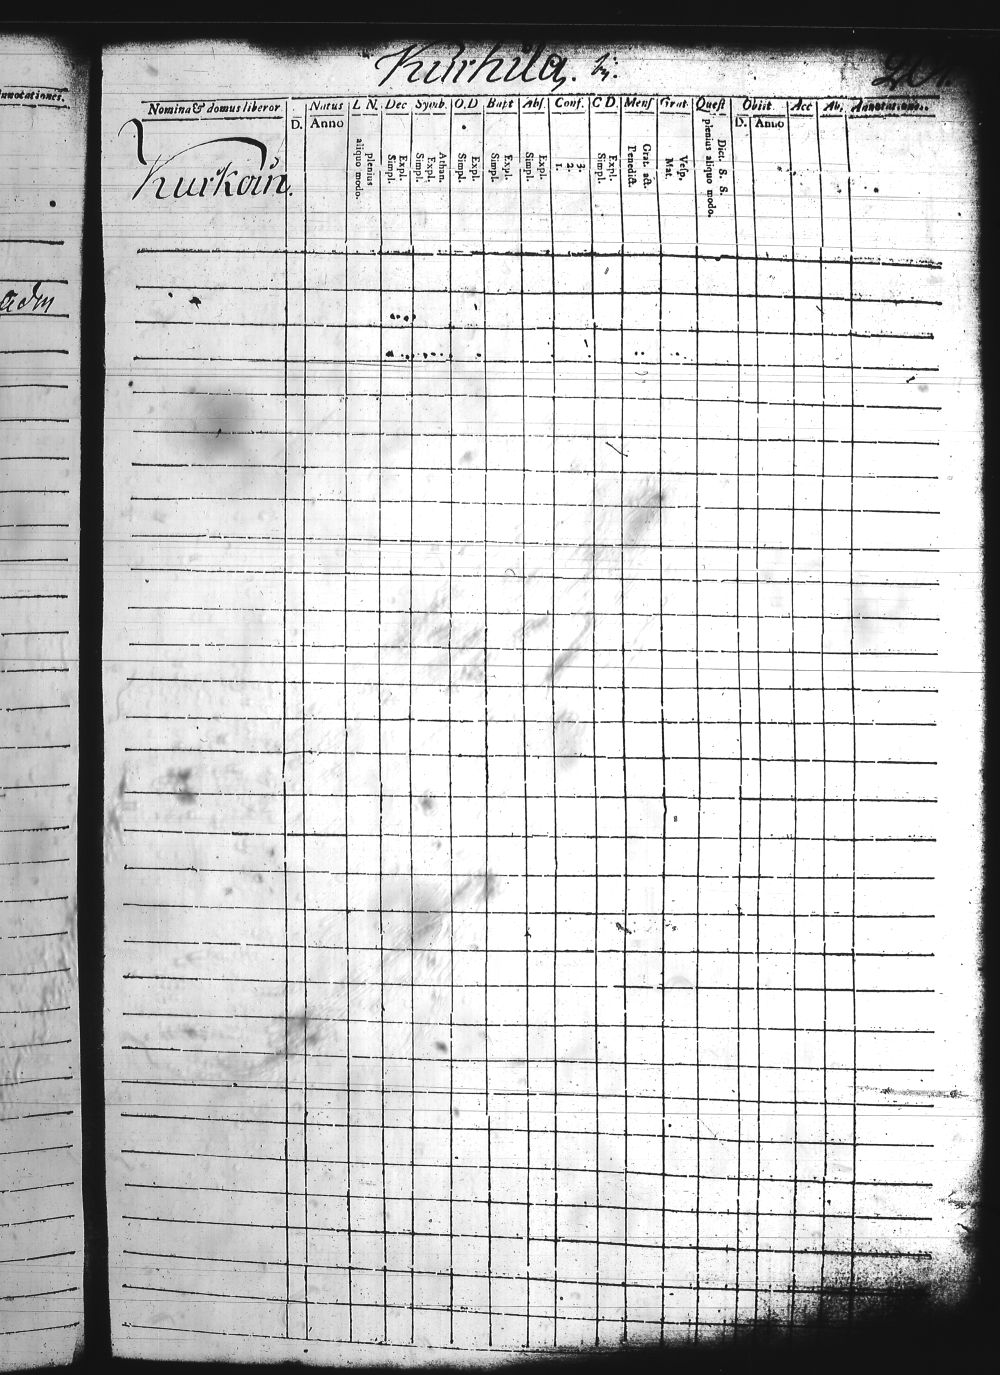 Annotationes.
adm
Kurkila, by.
Nomina & domus liberor. Natus L. N. Dec Symb. O.D Bapt Abs. Conf. C D. Mens Grat Quest Obiit Acc Ab. Annotationes.
D. Anno aliquo modo. plenius Simpl. Expl. Simpl. Expl. Athan. Simpl. Expl. Simpl. Expl. Simpl. Expl. 1. 2. 3. Simpl. Expl. Benedict. Grat. act. Mat. Vesp. plenius aliquo modo. Dict. S. S. D. Anno
Kurkoin.